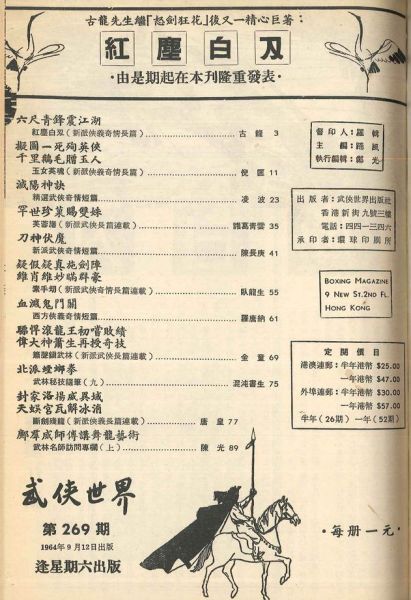 古龍先生繼「怒劍狂花」後又一精心巨著：
紅塵白刃
·由是期起在本刊隆重發表·
六尺青鋒震江湖
紅塵白刃（新派俠義奇情長篇）……古龍 3
擬圖一死殉英俠
千里鵝毛贈玉人
玉女英魂（新派俠義奇情長篇）……倪匡 11
滅陽神抉
精選武俠奇情短篇……凌波 23
罕世珍菓賜雙姝
芙蓉（新派武俠長篇連載）……諸葛青雲 35
刀神伏魔
新派武俠奇情短篇……陳長庚 41
疑假疑真施劍陣
維肖維妙瞞群豪
素手刼（新派俠義奇情長篇連載）……臥龍生 55
血濺鬼門關
西方俠義奇情短篇……羅唐納 61
滾龍王初嘗敗績
偉大神簫生再投奇技
鎮武林（新派武俠長篇連載）……金童 69
北派螳螂拳
武林秘技隨筆（九）……混沌書生 75
封家洛揚威異域
天娛宮瓦解冰消
斷劍殘龍（新派俠義長篇連載）……唐皇 77
鄺群威師傅講舞龍藝術
武林名師訪問專欄（上）……陳光 89
督印人：羅輯
主編：羅風
執行編輯：鄭光
出版者：武俠世界出版社
香港新街九號三樓
電話：四四一三四六
承印者：環球印刷所
BOXING MAGAZINE
9 NEW ST. 2ND FL.
HONG KONG
定閱價目
港澳連郵：半年港幣 $25.00
一年港幣 $47.00
外埠連郵：半年港幣 $30.00
一年港幣 $57.00
半年（26期）一年（52期）
武俠世界
第 269 期
1964年9月12日出版
逢星期六出版
·每冊一元·